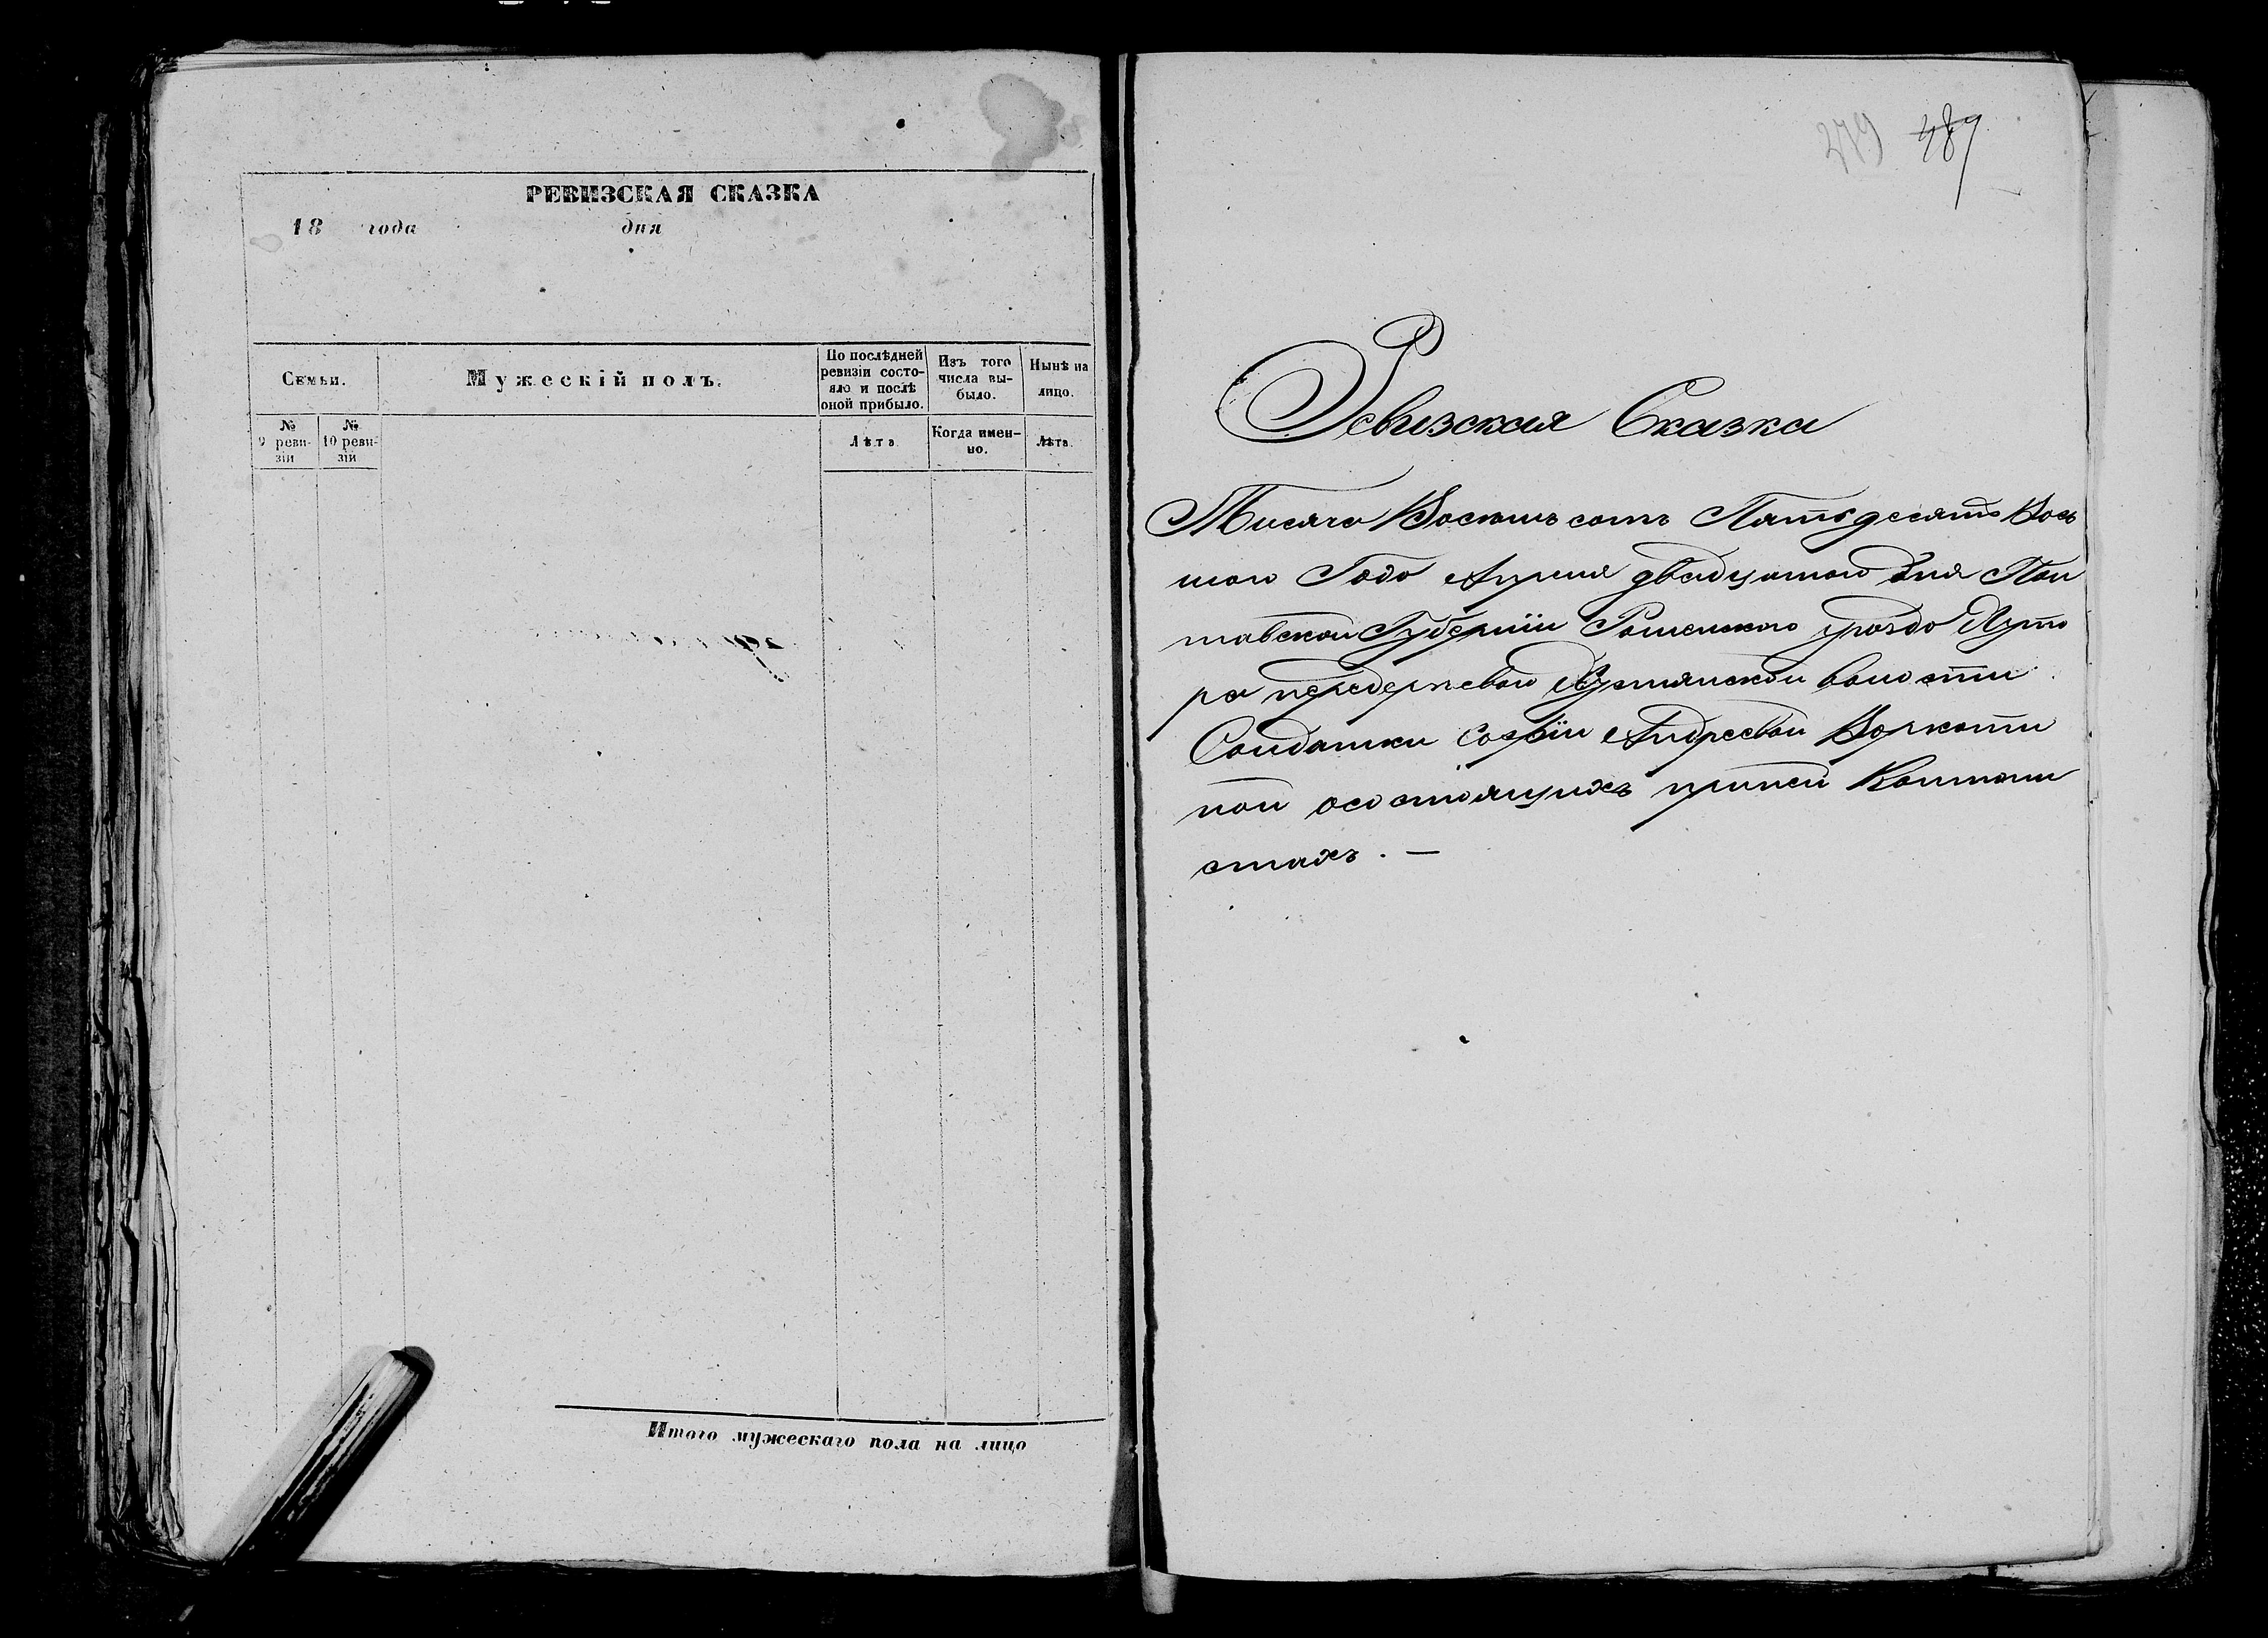 РЕВИЗСКАЯ СКАЗКА
18 года дня
Семьи.
Мужескій полъ.
По послѣдней ревизіи состояло и послѣ оной прибыло.
Изъ того числа выбыло.
Нынѣ на лицо.
№ 9 ревизіи
№ 10 ревизіи
Лѣта.
Когда именно.
Лѣта.
Итого мужескаго пола на лицо
279 487
Ревизская Сказка
Тисяча Восемь сотъ Пятьдесятъ Вось
мого Года Апреля двадцатого дня Пол
тавской Губерніи Роменского уезда Хуто
ра волости
Солдатки Софіи Андреевой
ной осостоящихъ приней Кантони
стахъ. —